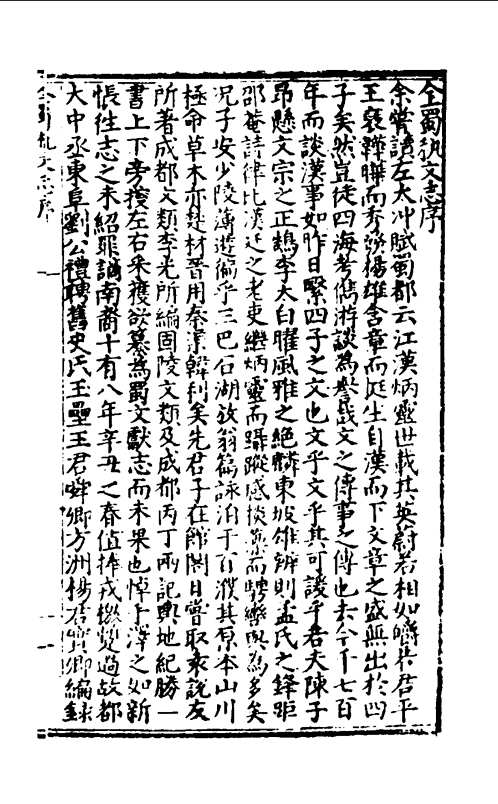 全蜀執文志序
余嘗讀左太冲賦蜀都云江漢炳靈世載其英蔚若相如皭若君平
王褒韡曄而秀發楊雄含章而挺生自漢而下文章之盛無出於四
子矣然豈徒四海考儁游談為譽哉文之傳事之傳也去今千七百
年而談漢事如昨日繄四子之文也文乎文乎其可諼乎若夫陳子
昂懸文宗之正鵠李太白曜風雅之絕麟東坡雄辨則孟氏之鋒距
邵菴詩律比漢廷之老吏繼炳靈而躡蹤感掞藻而騁轡輿為多矣
况子安少陵薄遊徧乎三巴石湖放翁篇詠洎于百濮其原本山川
極命草木亦楚材晉用秦渠韓利矣先君子在館閣日嘗取袁說友
所著成都文類李光所編固陵文類及成都丙丁兩記輿地紀勝一
書上下旁搜左右采獲欲纂為蜀文獻志而未果也悼手澤之如新
悵徃志之未紹罪謫南裔十有八年辛丑之春值捧戎檄暫過故都
大中丞東阜劉公禮聘舊史氏玉壘王君舜卿方洲楊君實卿編錄
全蜀執文志序
一